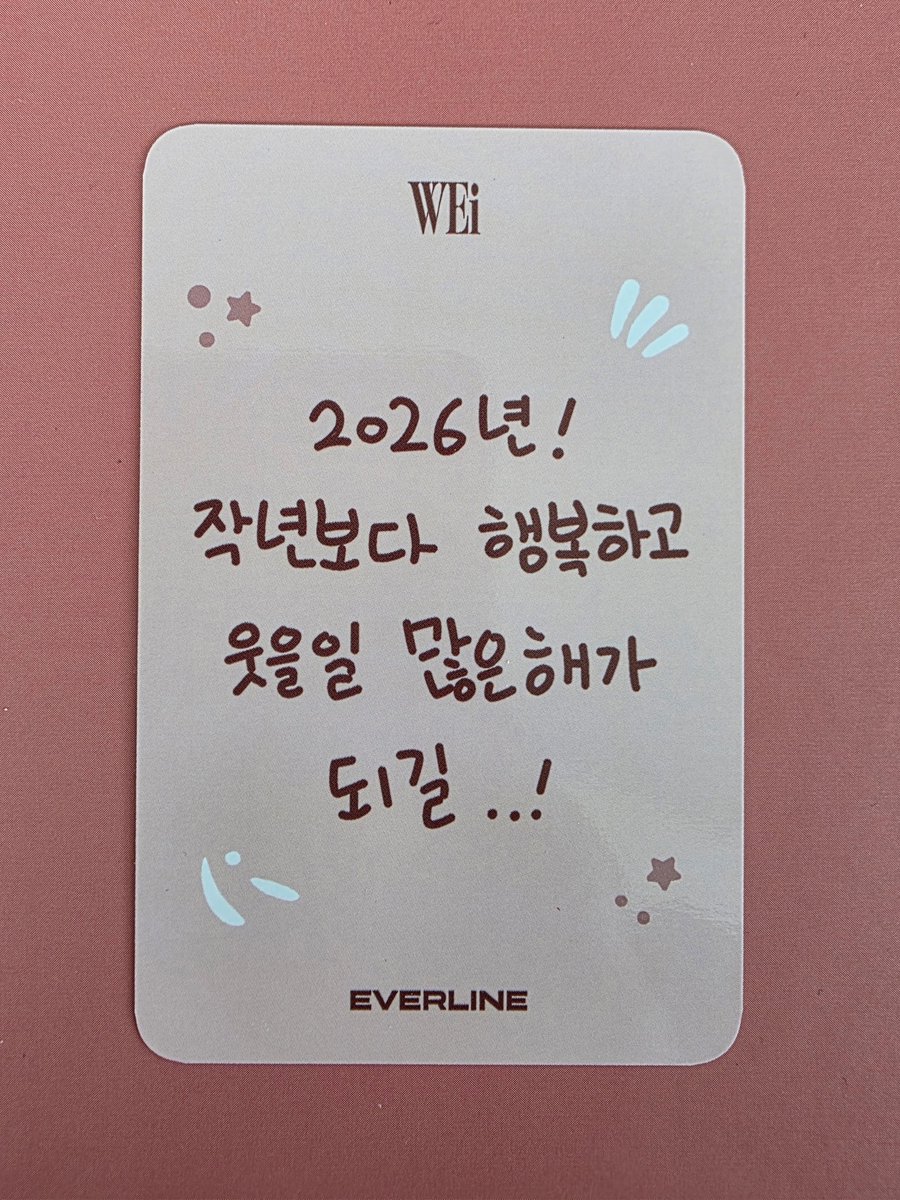 WEi
2026년!
작년보다 행복하고
웃을일 많은해가
되길..!
EVERLINE